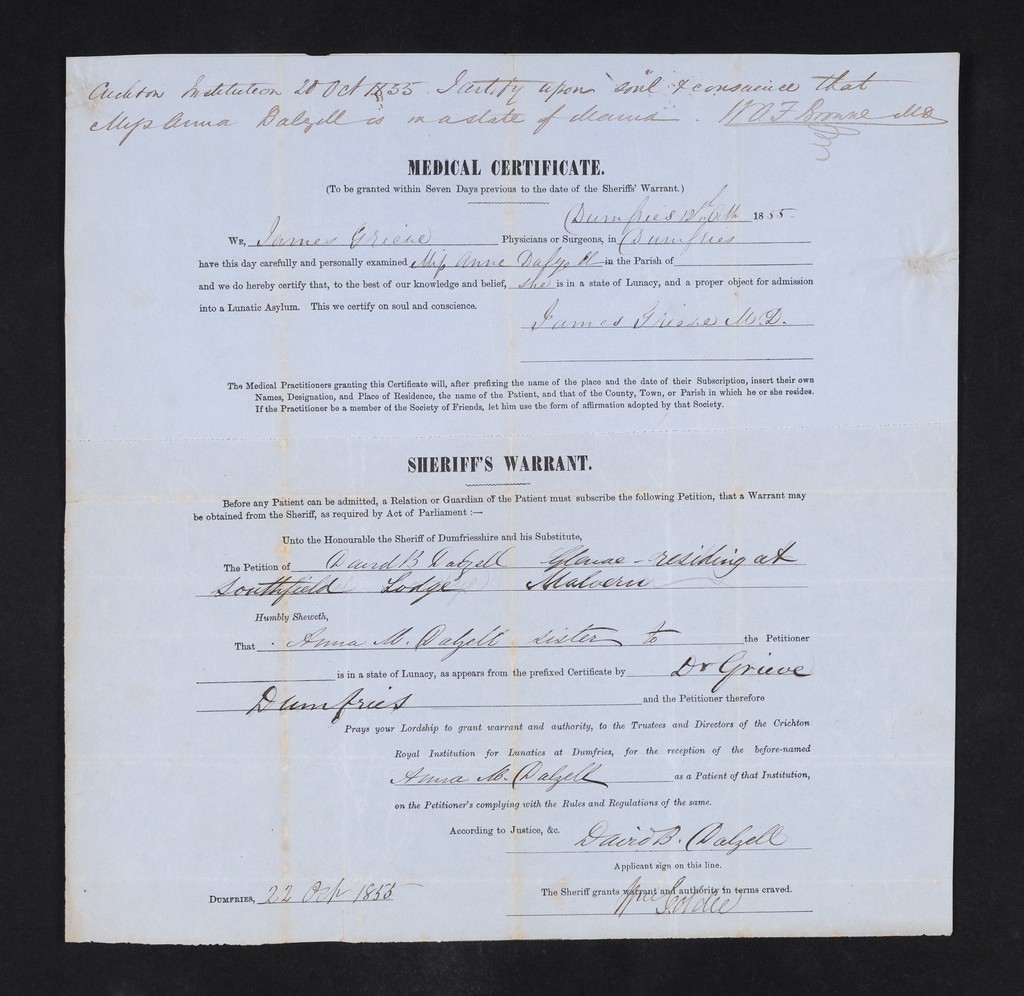 Crichton Institution 20 Oct 1855. I certify upon soul & conscience that
Miss Anna Dalzell is in a state of Mania. W.A.F. Browne MD
MEDICAL CERTIFICATE.
(To be granted within Seven Days previous to the date of the Sheriffs' Warrant.)
Dumfries 1855
WE, James Grieve Physicians or Surgeons, in Dumfries
have this day carefully and personally examined Miss Anne Dalzell in the Parish of
and we do hereby certify that, to the best of our knowledge and belief, she is in a state of Lunacy, and a proper object for admission
into a Lunatic Asylum. This we certify on soul and conscience.
James Grieve M.D.
The Medical Practitioners granting this Certificate will, after prefixing the name of the place and the date of their Subscription, insert their own
Names, Designation, and Place of Residence, the name of the Patient, and that of the County, Town, or Parish in which he or she resides.
If the Practitioner be a member of the Society of Friends, let him use the form of affirmation adopted by that Society.
SHERIFF'S WARRANT.
Before any Patient can be admitted, a Relation or Guardian of the Patient must subscribe the following Petition, that a Warrant may
be obtained from the Sheriff, as required by Act of Parliament :—
Unto the Honourable the Sheriff of Dumfriesshire and his Substitute,
The Petition of David B Dalzell Glenae - residing at
Southfield Lodge Malvern
Humbly Sheweth,
That Anna M. Dalzell sister to the Petitioner
is in a state of Lunacy, as appears from the prefixed Certificate by Dr Grieve
Dumfries and the Petitioner therefore
Prays your Lordship to grant warrant and authority, to the Trustees and Directors of the Crichton
Royal Institution for Lunatics at Dumfries, for the reception of the before-named
Anna M. Dalzell as a Patient of that Institution,
on the Petitioner's complying with the Rules and Regulations of the same.
According to Justice, &c. David B. Dalzell
Applicant sign on this line.
DUMFRIES, 22 Oct 1855 The Sheriff grants warrant and authority in terms craved.
Wm Goldie